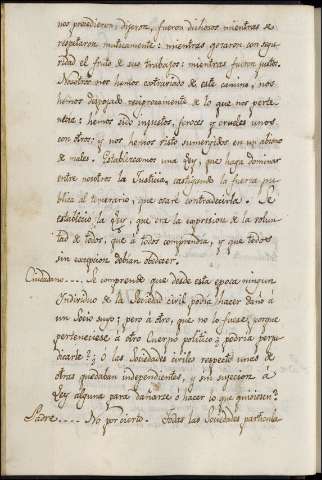 nos precedieron, dijeron, fueron dichosos mientras se
respetaron mutuamente: mientras gozaron con segu-
ridad el fruto de sus trabajos: mientras fueron justos.
Nosotros nos hemos extraviado de este camino, nos
hemos despojado reciprocamente de lo que nos perte-
necia: hemos sido injustos, feroces y crueles unos
con otros; y nos hemos visto sumergidos en un abismo
de males. Establezcamos una Ley, que haga dominar
entre nosotros la Justicia, castigando la fuerza pu-
blica al temerario, que osare contradecirla. Se
estableció la Ley, que era la expresion de la volun-
tad de todos, que à todos comprendia, y que todos
sin excepcion debian obedecer.
Ciudadano.... Se comprende que desde esta epoca ningun
Individuo de la Sociedad civil podia hacer daño à
un Socio suyo; pero à otro, que no lo fuese, porque
perteneciese à otro Cuerpo politico ¿podria perju-
dicarle? ¿O las Sociedades civiles respecto unas de
otras quedaban independientes, y sin sujecion à
Ley alguna para dañarse ò hacer lo que quisiesen?
Padre..... No por cierto. Todas las Sociedades particula-